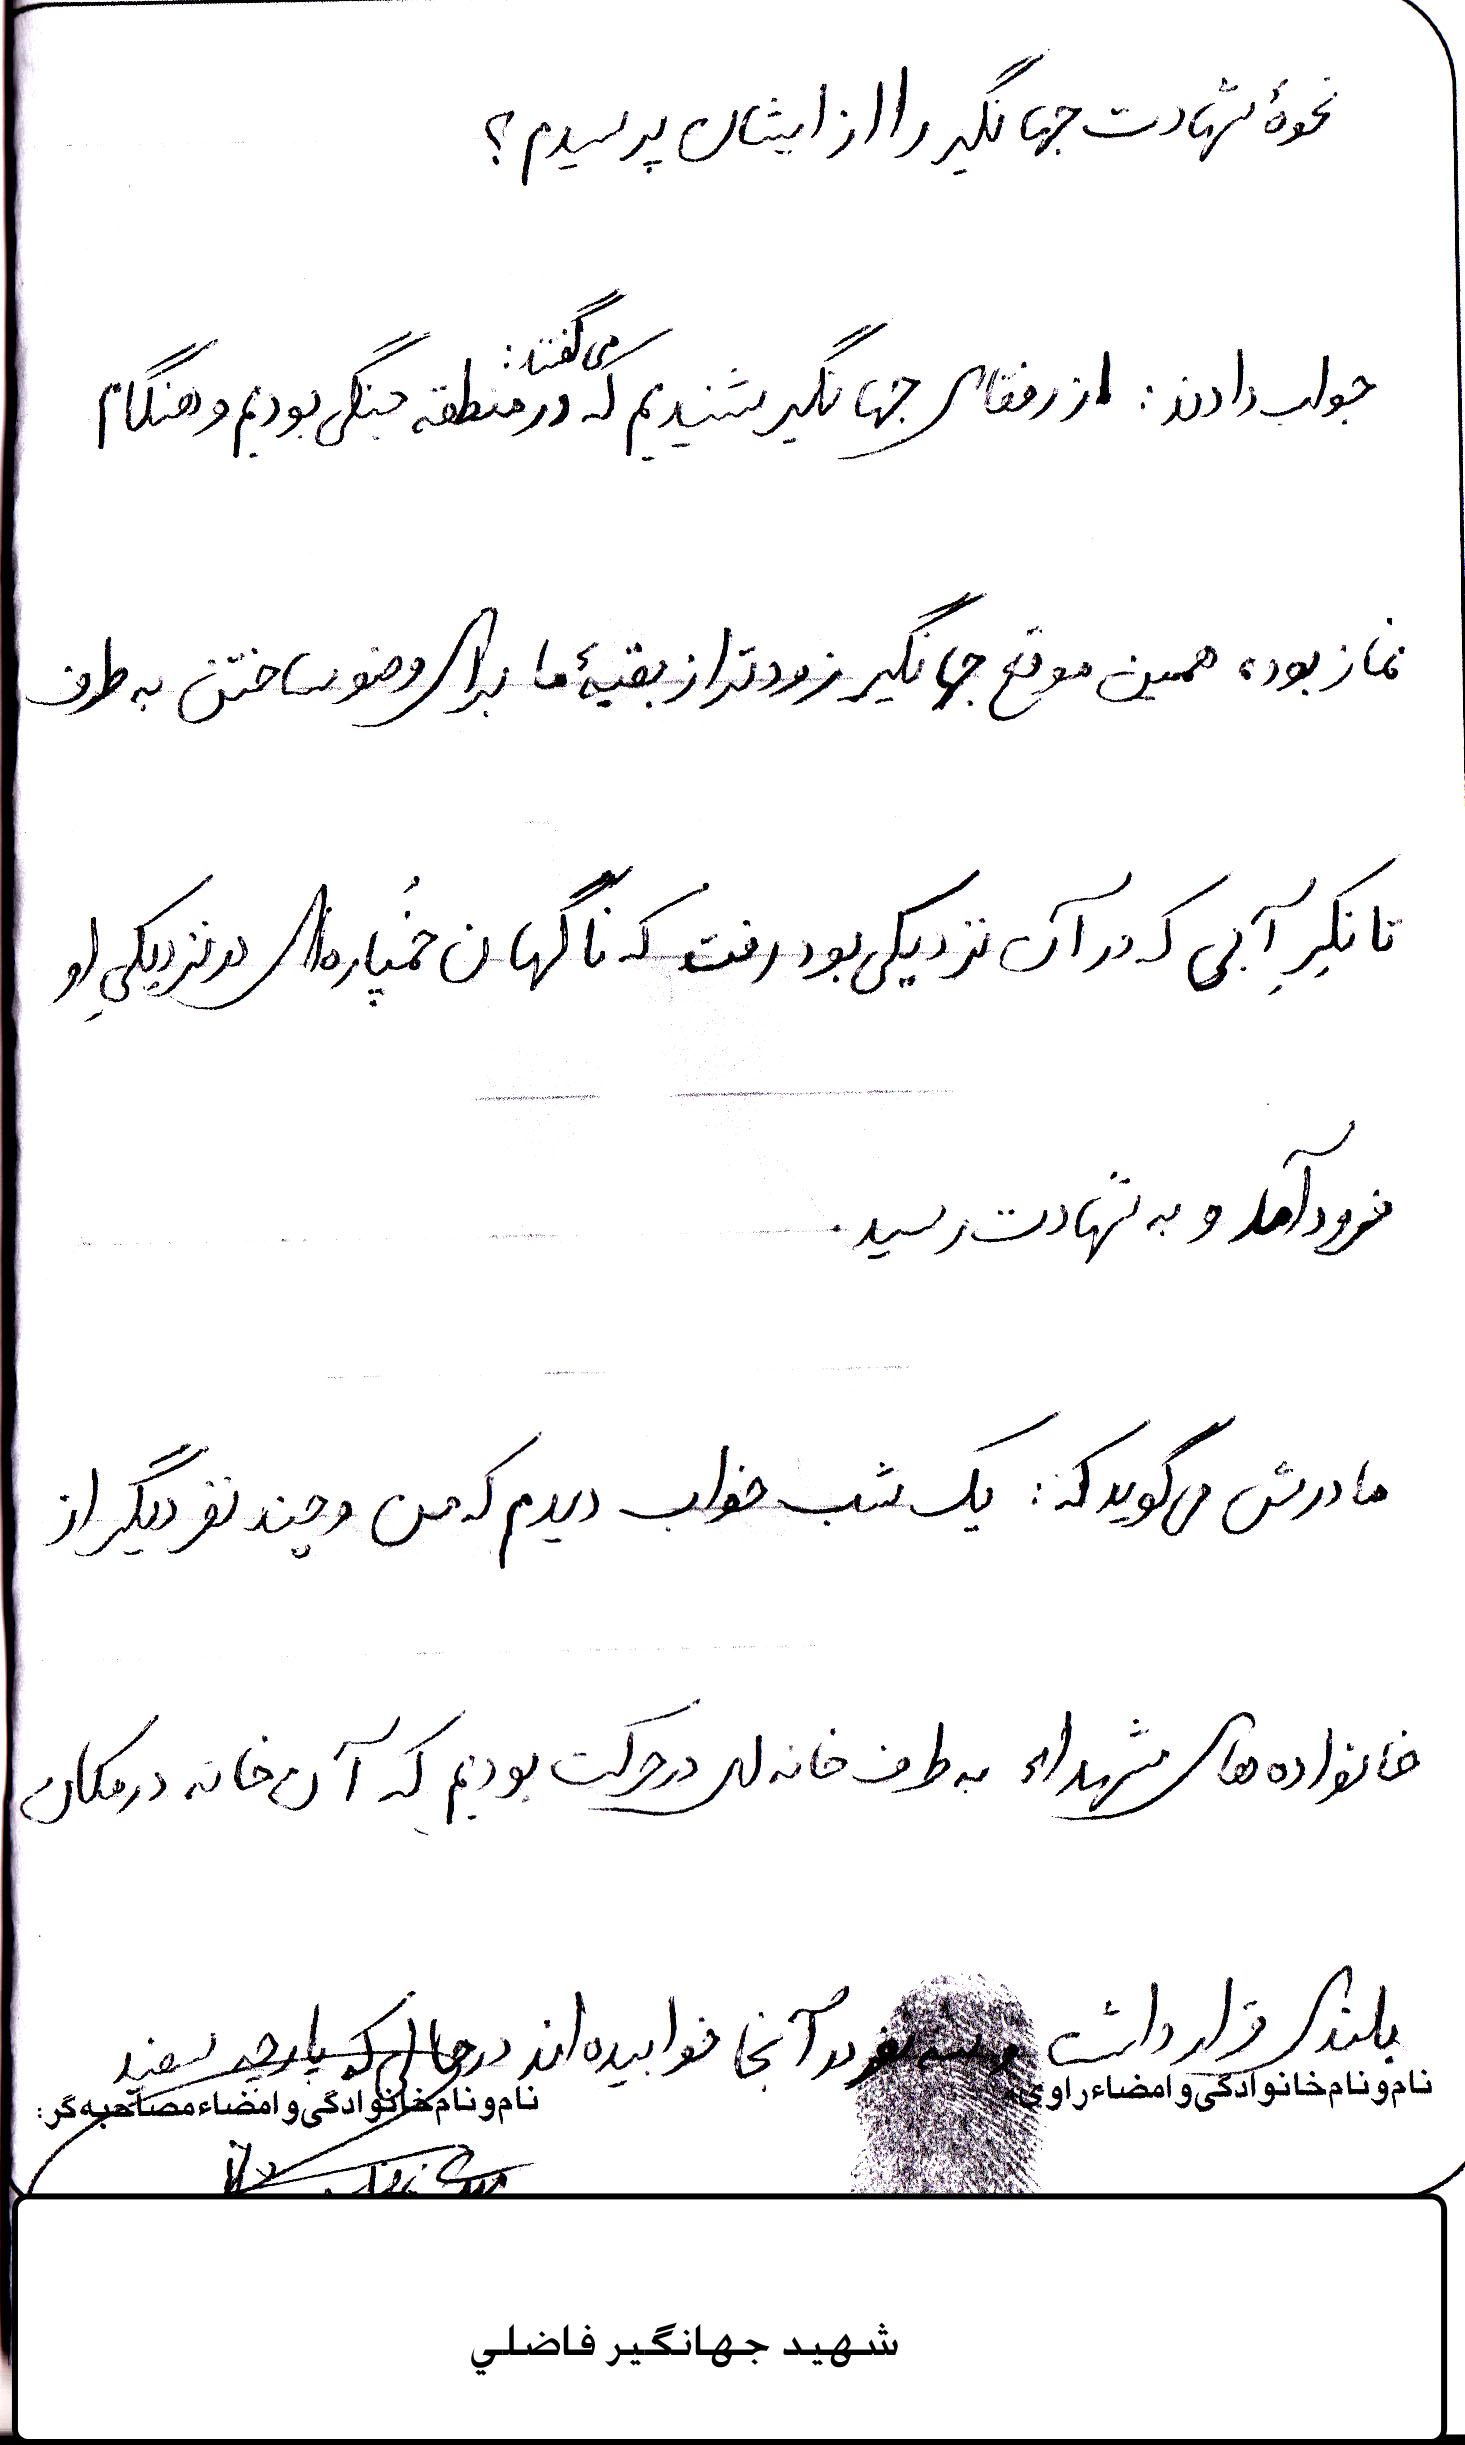 نحوهٔ شهادت جهانگیر را از ایشان پرسیدم؟
جواب دادند: از رفقای جهانگیر شنیدیم که می‌گفتند: در منطقه جنگی بودیم و هنگام
نماز بود، همین موقع جهانگیر زودتر از بقیهٔ ما برای وضو ساختن به طرف
تانکِرِ آبی که در آن نزدیکی بود رفت که ناگهان خُمپاره‌ای در نزدیکیِ او
فرود آمد و به شهادت رسید.
مادرش می‌گوید که: یک شب خواب دیدم که من و چند نفر دیگر از
خانواده‌های شهداء به طرف خانه‌ای در حرکت بودیم که آن خانه در مکان
بلندی قرار داشت و سه نفر در آنجا خوابیده‌اند در حالی که پارچه سفید
نام و نام خانوادگی و امضاء راوی:
نام و نام خانوادگی و امضاء مصاحبه گر:
شهيد جهانگير فاضلي